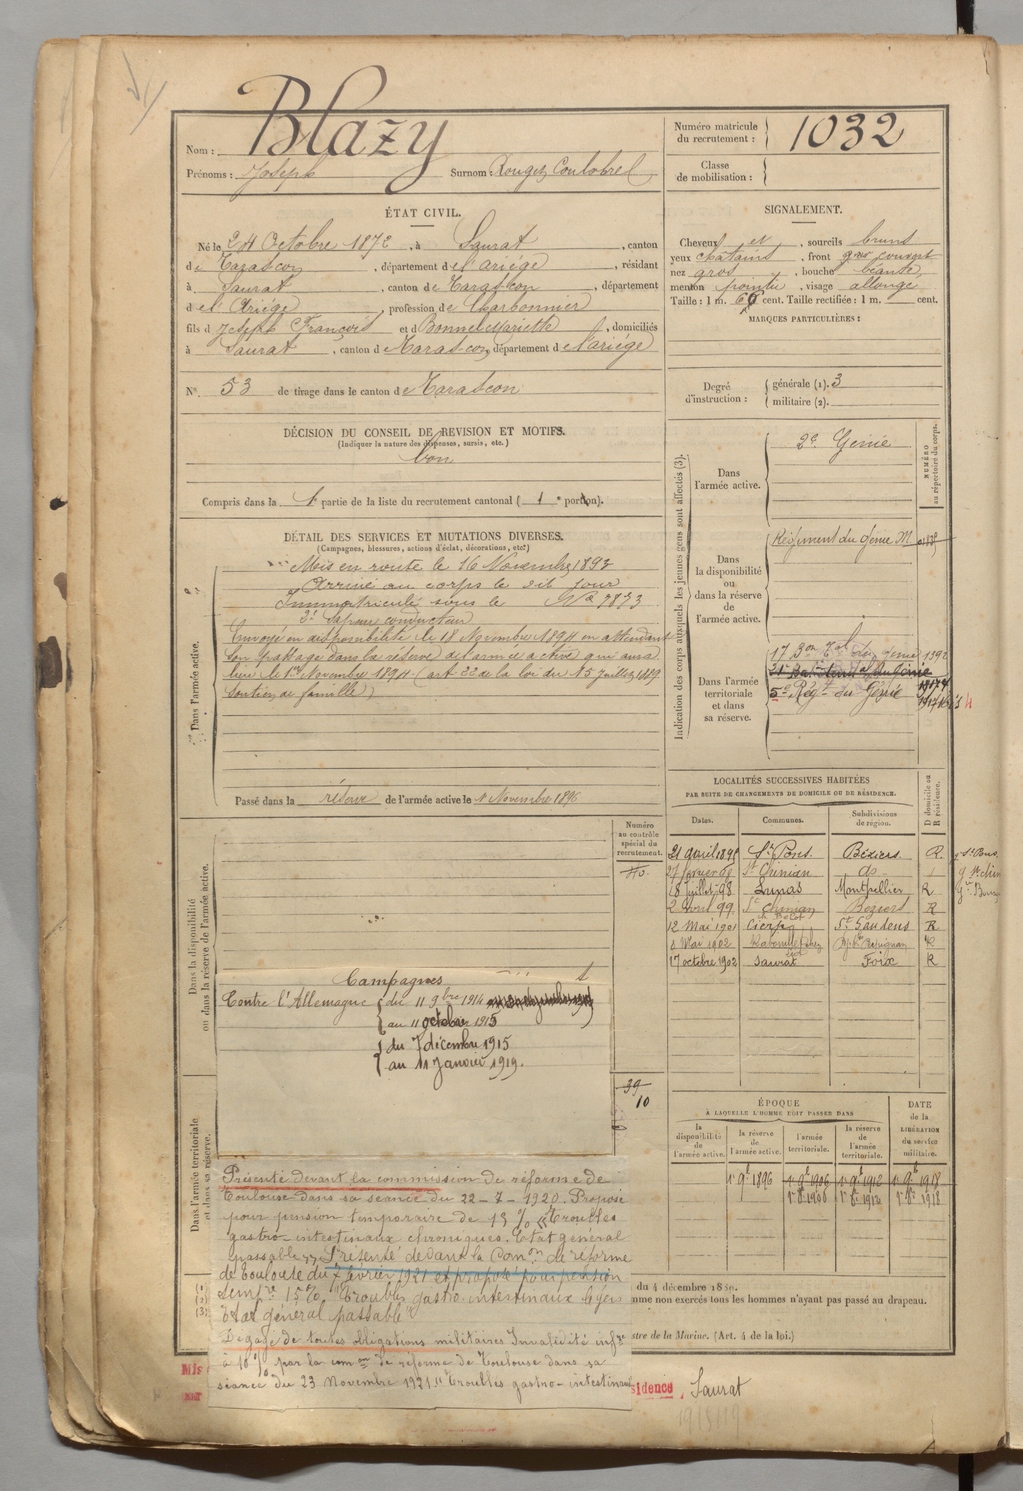 Nom : Blazy
Prénoms : Joseph Surnom : Rouget Coulobrel
Numéro matricule
du recrutement : 1032
Classe
de mobilisation :
ÉTAT CIVIL.
Né le 24 Octobre 1872, à Saurat, canton
de Tarascon, département de l'Ariége, résidant
à Saurat, canton de Tarascon, département
de l'Ariége, profession de Charbonnier
fils d Joseph François et d Bonnel Mariette, domiciliés
à Saurat, canton d Tarascon, département d l'Ariége
N° 53 de tirage dans le canton de Tarascon
DÉCISION DU CONSEIL DE REVISION ET MOTIFS.
(Indiquer la nature des dispenses, sursis, etc.)
bon
Compris dans la 1e partie de la liste du recrutement cantonal (1e portion).
SIGNALEMENT.
Cheveux et, sourcils bruns
yeux chatains, front couvert
nez gros, bouche béante,
menton pointu, visage allongé
Taille : 1 m. 66 cent. Taille rectifiée : 1 m. cent.
MARQUES PARTICULIÈRES :
Degré
d'instruction :
générale (1). 3
militaire (2).
DÉTAIL DES SERVICES ET MUTATIONS DIVERSES.
(Campagnes, blessures, actions d'éclat, décorations, etc.)
Dans l'armée active.
Mis en route le 16 Novembre 1893
Arrivé au corps le dit jour
Immatriculé sous le No 7873
2e Sapeur conducteur
Envoyé en disponibilité le 18 Novembre 1894 en attendant
son passage dans la réserve de l'armée active qui aura
lieu le 1er Novembre 1896 (art 22 de la loi du 15 Juillet 1889
soutien de famille)
Passé dans la réserve de l'armée active le 1 Novembre 1896
Indication des corps auxquels les jeunes gens sont affectés (3).
NUMÉRO
au répertoire du corps.
Dans
l'armée active.
2e Génie
Dans
la disponibilité
ou
dans la réserve de
l'armée active.
Régiment du Génie M
Dans l'armée
territoriale
et dans
sa réserve.
17 Bon Tal du Génie 1392
5e Régt du Génie
LOCALITÉS SUCCESSIVES HABITÉES
PAR SUITE DE CHANGEMENTS DE DOMICILE OU DE RÉSIDENCE.
Dates. Communes. Subdivisions
de région. D domicile ou
R résidence.
21 avril 1895 St Pons Béziers R
27 février 98 St Chinian do
18 juillet 98 Lunas Montpellier R
2 Avril 99 St Chinian Béziers R
12 Mai 1901 Cierp St Gaudens R
8 Mai 1902 Perpignan R
17 octobre 1902 Saurat Foix R
Dans la disponibilité
ou dans la réserve de l'armée active.
Numéro
au contrôle
spécial du
recrutement.
Campagnes
Contre l'Allemagne du 11 9bre 1914
au 11 octobre 1915
du 7 décembre 1915
au 11 Janvier 1919.
39
10
ÉPOQUE
À LAQUELLE L'HOMME DOIT PASSER DANS
la
disponibilité
de
l'armée active. la réserve
de
l'armée active. l'armée
territoriale. la réserve
de
l'armée
territoriale.
DATE
de la
LIBÉRATION
du service
militaire.
1er 9e 1896 1er 9e 1906 1er 9e 1912 1er 9e 1918
Dans l'armée territoriale
et dans sa réserve.
Présenté devant la commission de réforme de
Toulouse dans sa séance du 22-7-1920. Proposé
pour pension temporaire de 15 % "Troubles
gastro-intestinaux chroniques. Etat général
passable". Présenté devant la Comon de réforme
de Toulouse du 7 février 1921 et proposé pour pension
tempre 15% "Troubles gastro intestinaux légers
état général passable"
Dégagé de toutes obligations militaires Invalidité infre
à 10 % par la comon de réforme de Toulouse dans sa
séance du 23 Novembre 1921 "Troubles gastro-intestinaux
du 4 décembre 1889.
mme non exercés tous les hommes n'ayant pas passé au drapeau.
stre de la Marine. (Art. 4 de la loi.)
Mis
sidence, Saurat